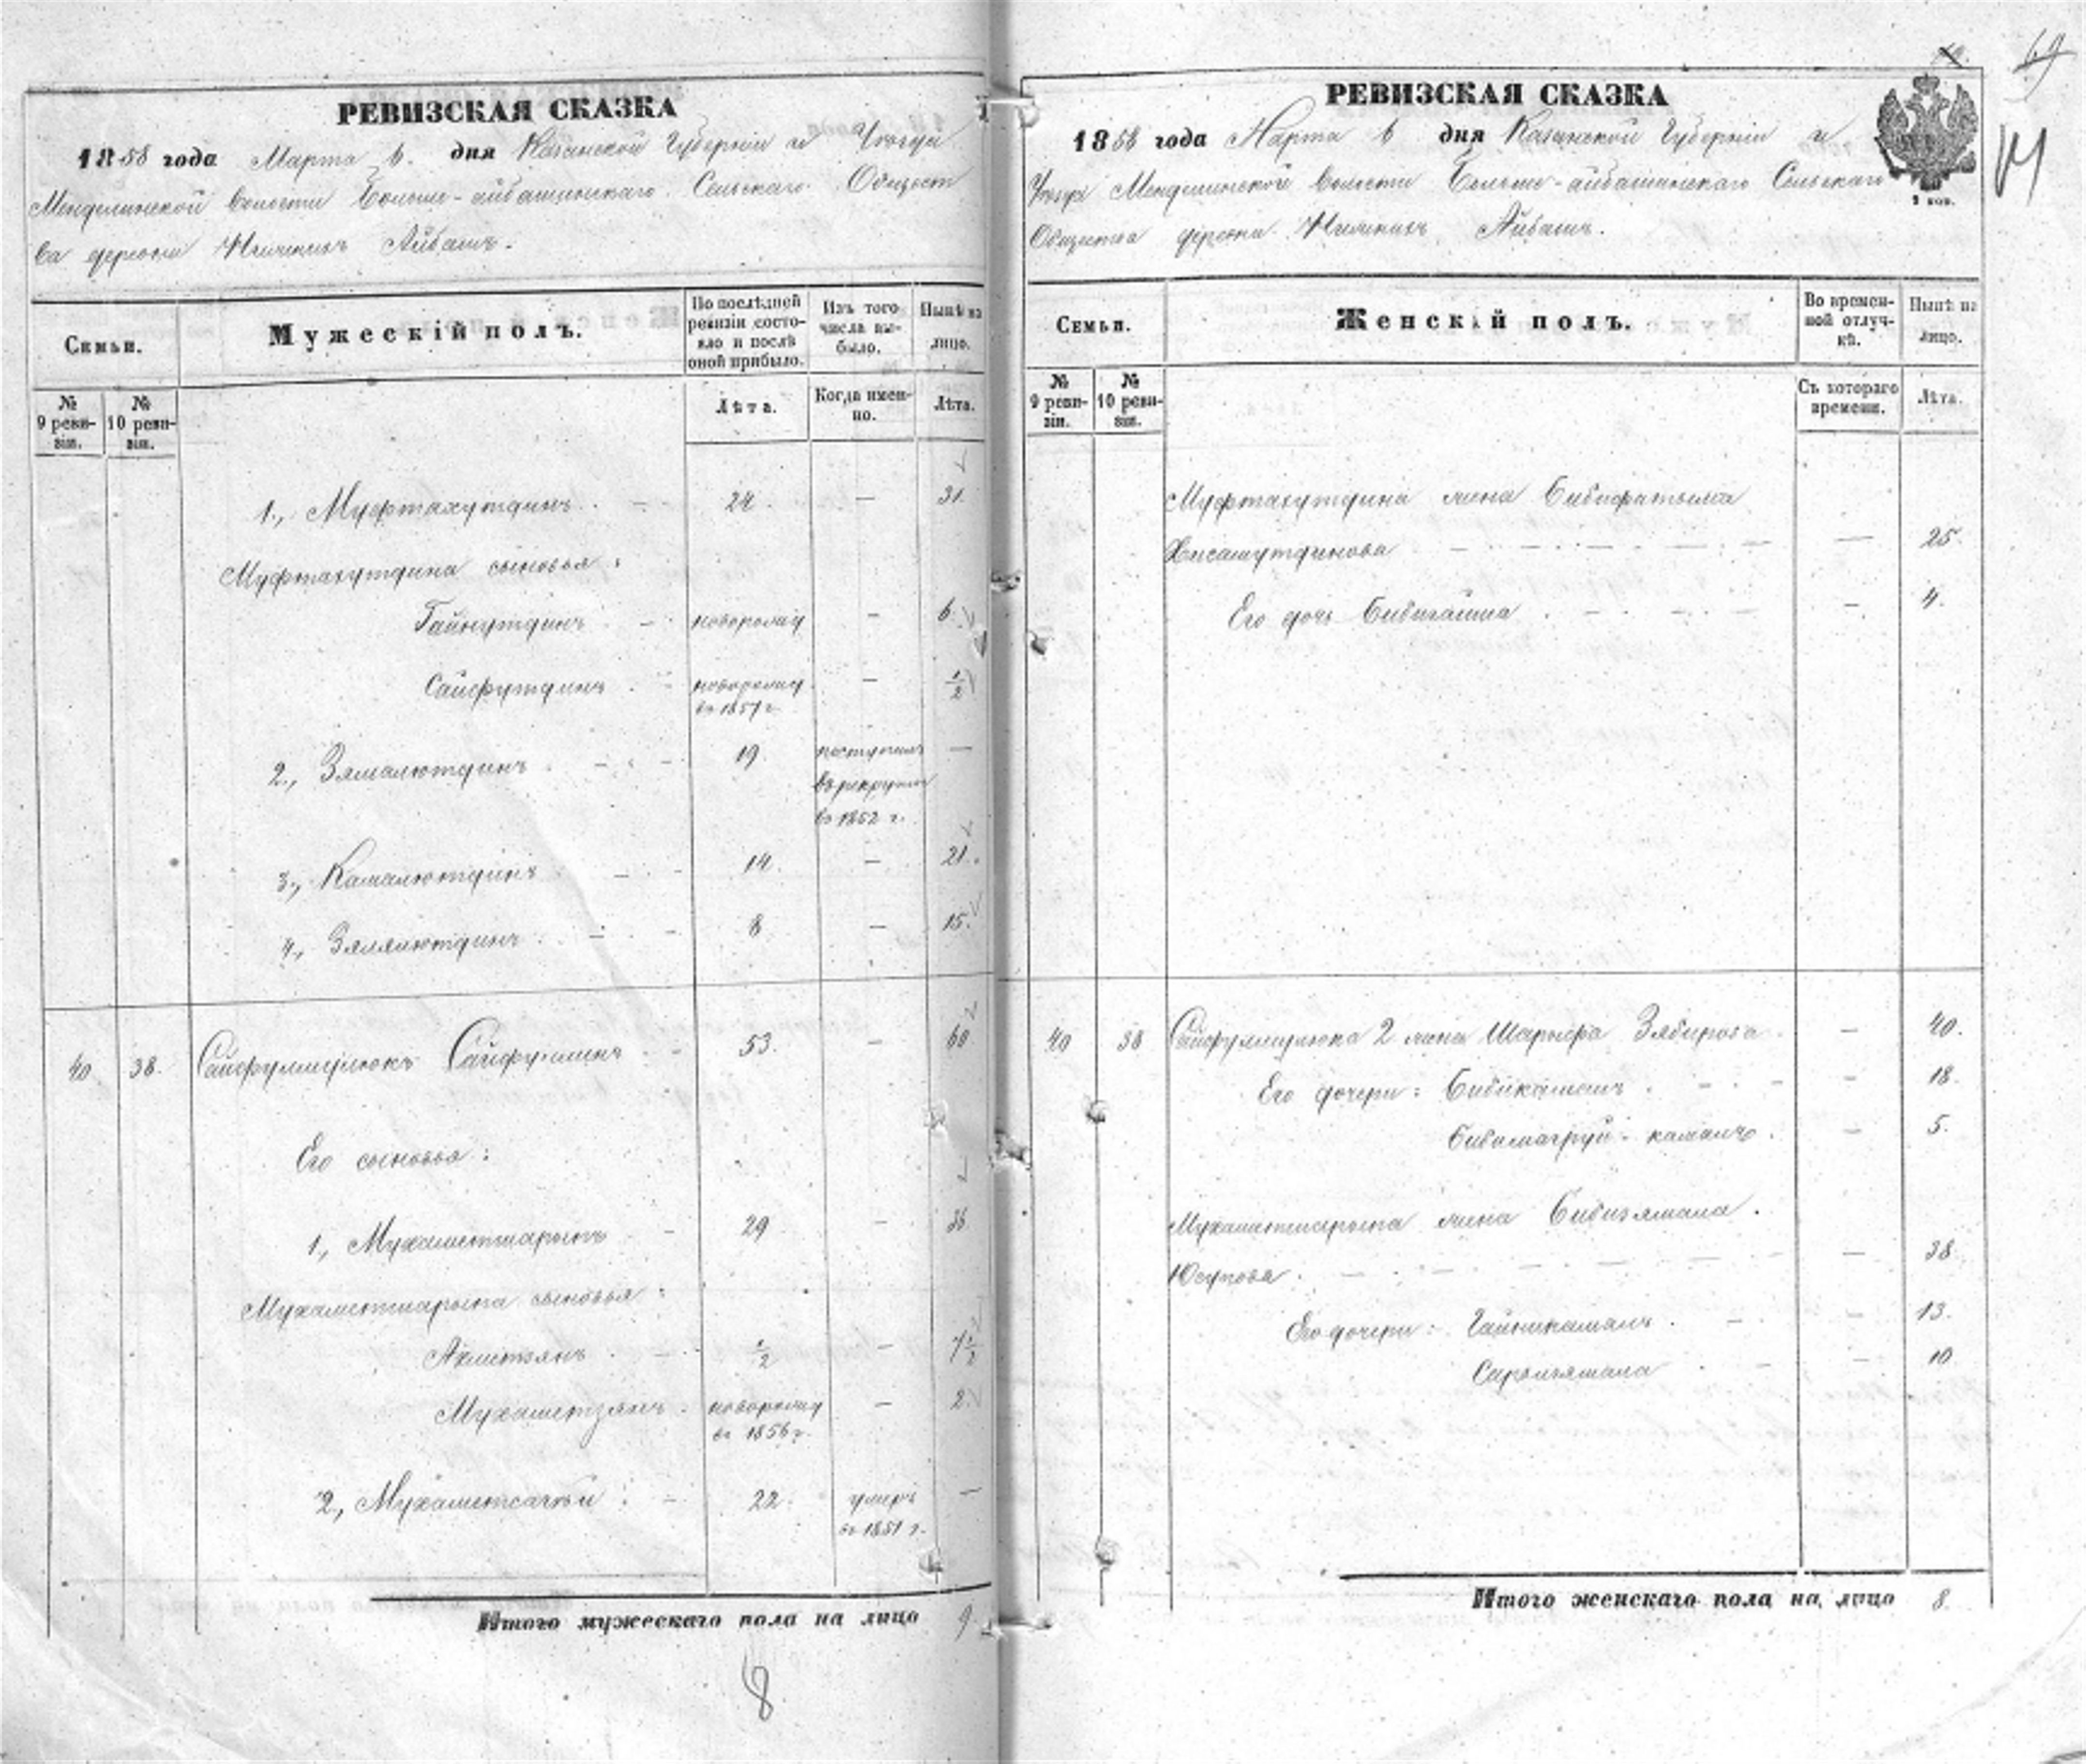 РЕВИЗСКАЯ СКАЗКА
1858 года Марта 6. дня Казанской Губернии и Уезда
Менделинской волости Больше-айбашинскаго Сельскаго Общест
ва деревни Айбашъ.
Семьи.
Мужескій полъ.
По послѣдней ревизіи состояло и послѣ оной прибыло.
Изъ того числа выбыло.
Нынѣ на лицо.
№ 9 ревизіи.
№ 10 ревизіи.
Лѣта.
Когда именно.
Лѣта.
1., Муфтахутдинъ. 24. — 31.
Муфтахутдина сыновья:
Гайнутдинъ новорожд — 6.
Сайфутдинъ новорожд. — 1/2
въ 1857 г.
2., Зямалютдинъ 19. поступилъ —
въ рекруты
въ 1852 г.
3., Камалютдинъ 14. — 21.
4., Зяллялютдинъ. 8 — 15.
40 38. Сайфулмулюкъ Сайфуллинъ 53. — 60
Его сыновья:
1, Мухаметшарыпъ 29 — 36.
Мухаметшарыпа сыновья:
Ахметзянъ 1/2 — 7 1/2
Мухаметзянъ. новорожд — 2.
въ 1856 г.
2, 22. умеръ —
въ 1851 г.
Итого мужескаго пола на лицо 9.
8
69
РЕВИЗСКАЯ СКАЗКА
1858 года Марта 6 дня Казанской Губерніи и
Уезда Менделинской волости Больше-айбашинскаго Сельскаго
Общества деревни Айбашъ.
Семьи.
Женскій полъ.
Во временной отлучкѣ.
Нынѣ на лицо.
№ 9 ревизіи.
№ 10 ревизіи.
Съ котораго времени.
Лѣта.
Муфтахутдина жена Бибифатыма
Хисамутдинова — 25.
Его дочь Бибигайша — 4.
40 38 Сайфулмулюка 2 жена Зябирова — 40.
Его дочери: Бибикамалъ. — 18.
— 5.
Мухаметшарыпа жена Бибизямала.
Юсупова. — 38
Его дочери: Гайникамалъ. — 13.
— 10
Итого женскаго пола на лицо 8.